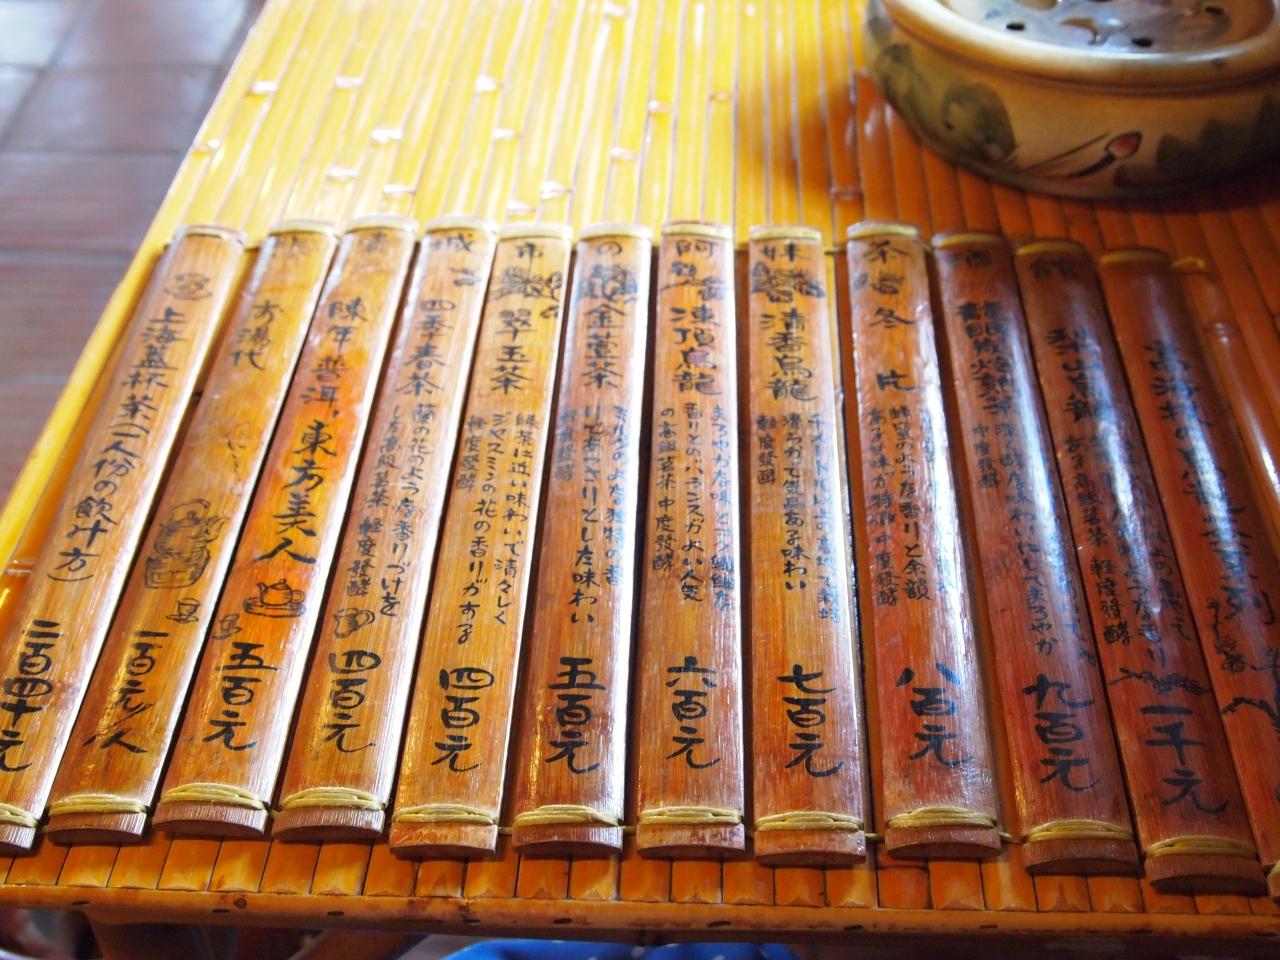 上海蓋杯茶(一人份の飲汁方)
二百四十元
お湯代
一百元/人
陳年普洱,東方美人
五百元
城
四季春茶
蘭の花のような香りづけを
した高級茗茶 輕度發酵
四百元
市
翠玉茶
緑茶に近い味わいで清々しく
ジャスミンの花の香りがする
輕度發酵
四百元
の
金萱茶
ミルクのような独特の香
りであっさりとした味わい
輕度發酵
五百元
阿
凍頂烏龍
まろやかな味とコク繊細な
香りとのバランスがよい人気
の高級茗茶 中度發酵
六百元
妹
清香烏龍
千メートル以上の高地で栽培
滑らかで気品ある味わい
輕度發酵
七百元
茶
冬片
蜂蜜のような香りと余韻
ある味が特徴 中度發酵
八百元
酒
中度發酵
九百元
館
梨山烏龍
ある高級茗茶 輕度發酵
一千元